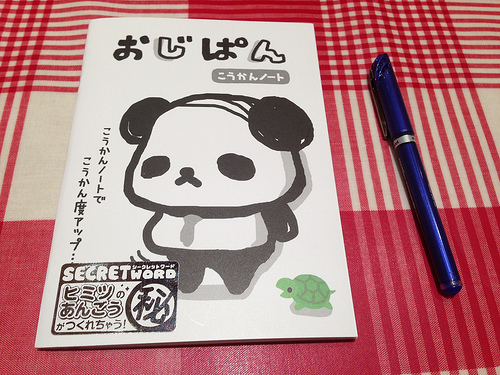 おじぱん
こうかんノート
こうかんノートで
こうかん度アップ…
シークレットワード
SECRET WORD
ヒミツの
あんごう
がつくれちゃう!
㊙